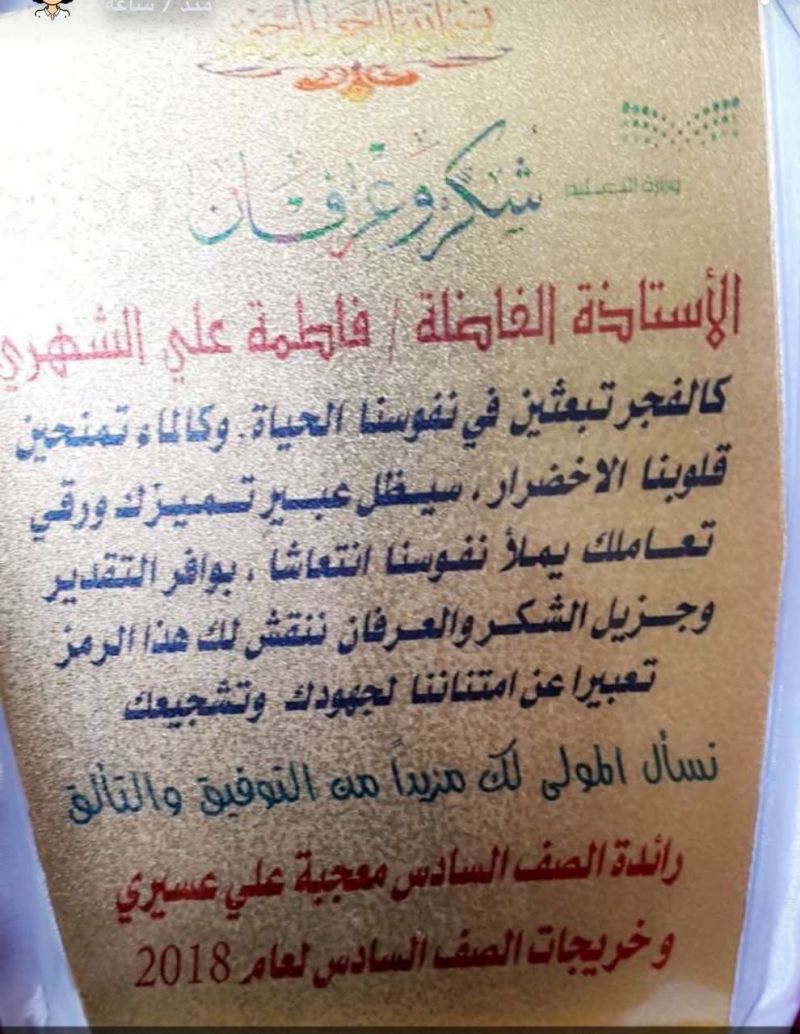 منذ 7 ساعة
بسم الله الرحمن الرحيم
وزارة التعليم
شكر وعرفان
الأستاذة الفاضلة / فاطمة علي الشهري
كالفجر تبعثين في نفوسنا الحياة . وكالماء تمنحين
قلوبنا الاخضرار ، سيظل عبير تميزك ورقي
تعاملك يملأ نفوسنا انتعاشا ، بوافر التقدير
وجزيل الشكر والعرفان ننقش لك هذا الرمز
تعبيرا عن امتناننا لجهودك وتشجيعك
نسأل المولى لك مزيداً من التوفيق والتألق
رائدة الصف السادس معجبة علي عسيري
وخريجات الصف السادس لعام 2018